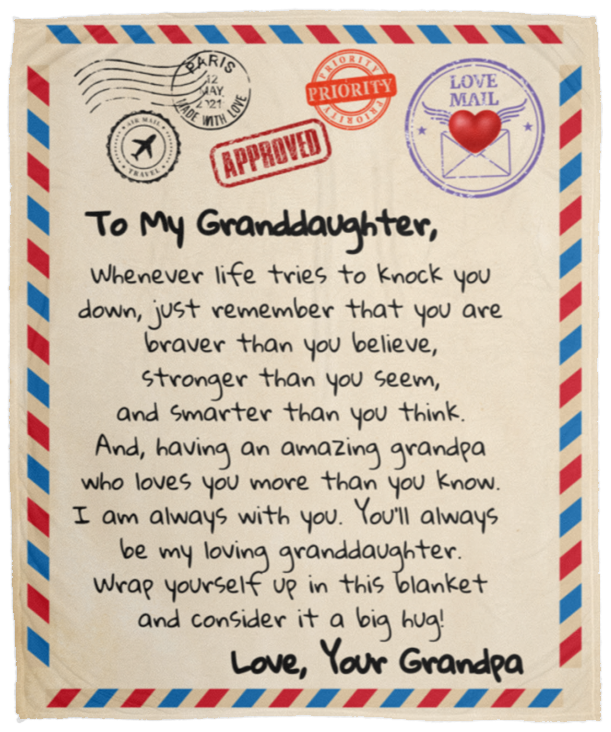 PARIS
12
MAY
2021
MADE WITH LOVE
AIR MAIL
TRAVEL
APPROVED
PRIORITY
PRIORITY
PRIORITY
LOVE
MAIL
To My Granddaughter,
Whenever life tries to knock you
down, just remember that you are
braver than you believe,
stronger than you seem,
and smarter than you think.
And, having an amazing grandpa
who loves you more than you know.
I am always with you. You'll always
be my loving granddaughter.
Wrap yourself up in this blanket
and consider it a big hug!
Love, Your Grandpa